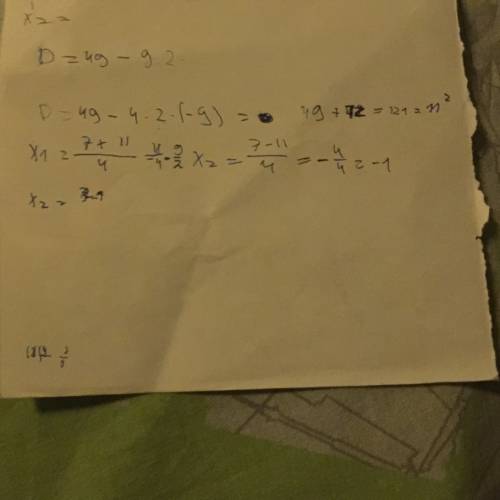 x₂ =
D = 49 - 9 · 2
D = 49 - 4 · 2 · (-9) = 49 + 72 = 121 = 11²
x1 = 7 + 11 / 4 = 9/2 x₂ = 7 - 11 / 4 = - 4/4 = -1
x₂ =